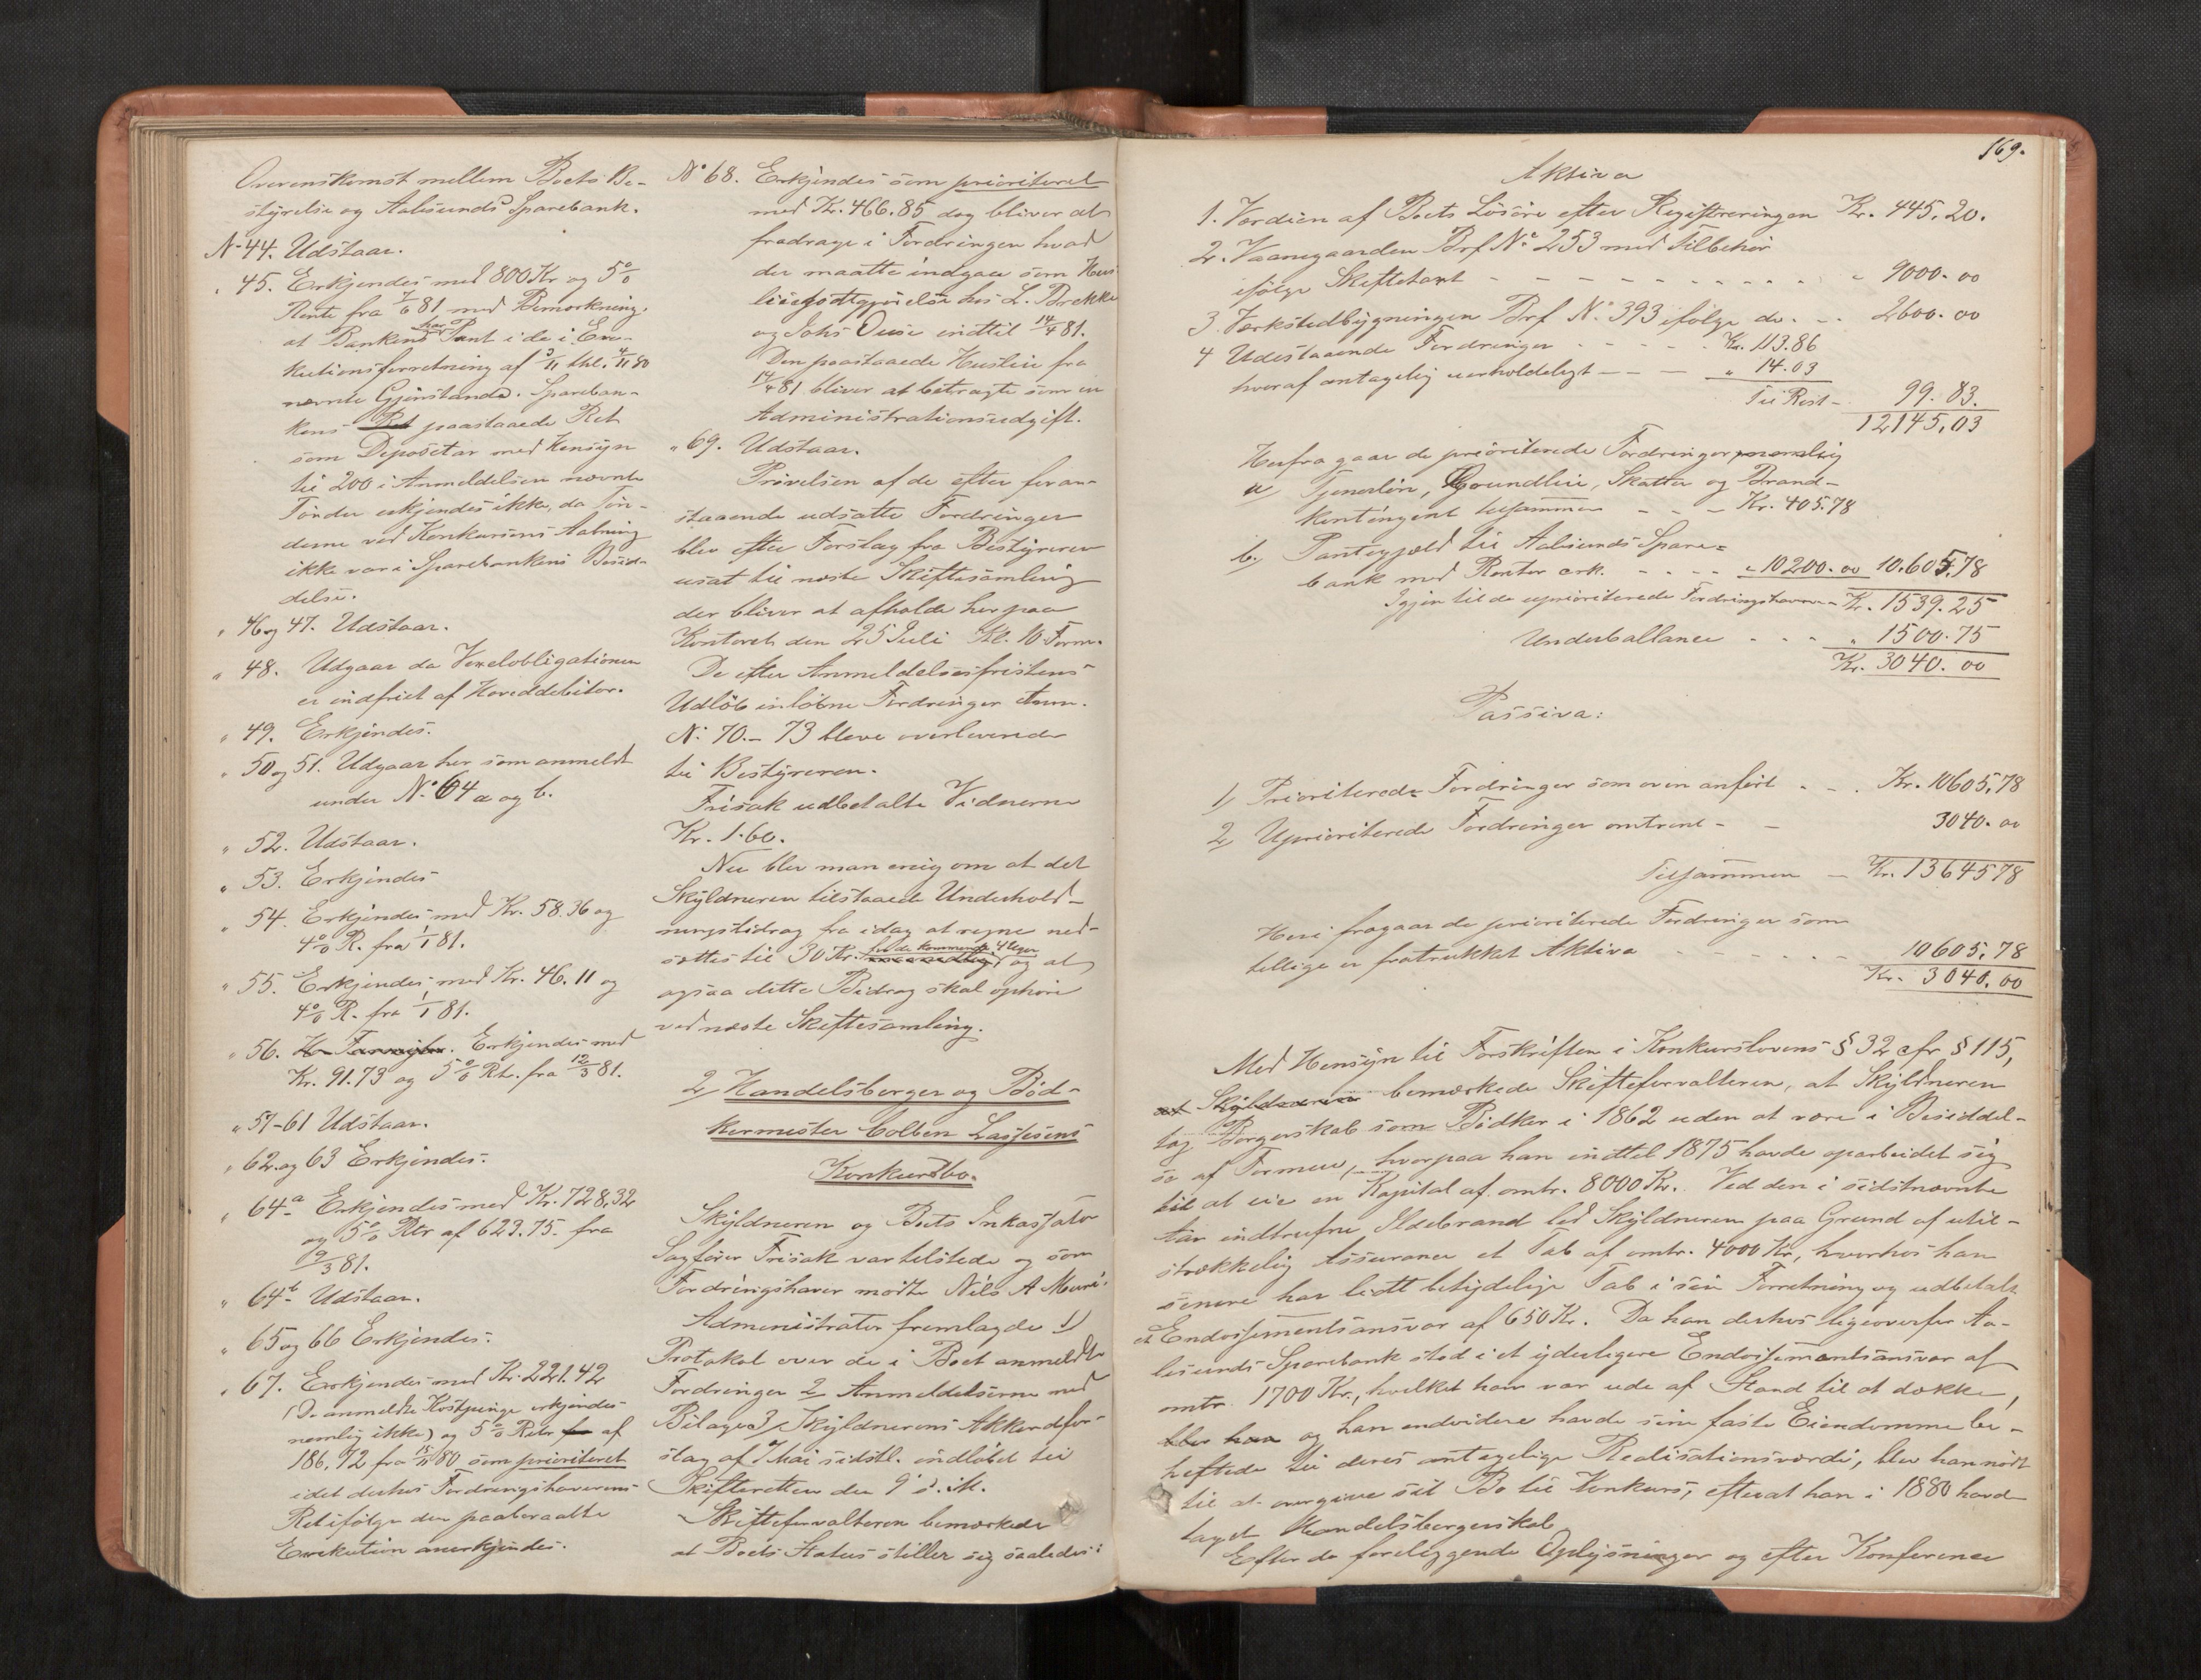 Overenskomst mellem Boets Be-
styrelse og Aalesunds Sparebank.
No 44. Udstaar.
" 45. Erkjendes med 800 Kr og 5 %
Rente fra 7/6 81, med Bemærkning,
at Banken har Pant i de i Exe-
kutionsforretning af 3/11 thl. 4/11 80
nævnte Gjenstande. Spareban-
kens Ret paastaaede Ret
som Depositar med Hensyn
til 200 i Anmeldelsen nævnte
Tønder erkjendes ikke, da Tøn-
derne ved Konkursens Aabning
ikke var i Sparebankens Besid-
delse.
" 46 og 47. Udstaar.
" 48. Udgaar da Vexelobligationen
er indfriet af Hoveddebitor.
" 49. Erkjendes.
" 50 og 51. Udgaar her som anmeldt
under No 64 a og b.
" 52. Udstaar.
" 53. Erkjendes
" 54. Erkjendes med Kr. 58.36 og
4 % R. fra 1/1 81.
" 55. Erkjendes med Kr. 46.11 og
4 % R. fra 1/1 81.
" 56. Erkjendes med
Kr. 91.73 og 5 % Rtr. fra 12/3 81.
" 57-61 Udstaar.
" 62 og 63 Erkjendes.
" 64a Erkjendes med Kr. 728,32
og 5 % Rtr af 623.75. fra
9/3 81.
" 64b Udstaar.
" 65 og 66 Erkjendes.
" 67. Erkjendes med Kr. 221.42
(De anmeldte Kostpenge erkjendes
nemlig ikke) og 5 % Rtr fra af
186,72 fra 15/11 80 som prioriteret
idet derhos Fordringshaverens
Ret ifølge den paaberaabte
Exekution anerkjendes.
No 68. Erkjendes som prioriteret
med Kr. 466.85 dog bliver at
fradrage i Fordringen hvad
der maatte indgaa som Hus-
leiegodtgjørelse hos L. Brekke
og Johs Ouse indtil 14/4 81.
Den paastaaede Husleie fra
14/4 81 bliver at betragte som en
Administrationsudgift.
" 69. Udstaar.
Prøvelsen af de efter foran-
staaende udsatte Fordringer
blev efter Forslag fra Bestyreren
usat til næste Skiftesamling
der bliver at afholde her paa
Kontoret den 25 Juli Kl. 10 Form.
De efter Anmeldelsesfristens
Udløb inløbne Fordringer Anm.
No 70.- 73 bleve overleverede
til Bestyreren.
Frisak udbetalte Vidnerne
Kr. 1.60.
Nu blev man enig om at det
Skyldneren tilstaaede Underhold-
ningsbidrag fra idag at regne ned-
sættes til 30 Kr. maanedlig for de kommende 4 Uger og at
ogsaa dette Bidrag skal ophøre
ved næste Skiftesamling.
2/ Handelsborger og Bød-
kermester Colben Lassesens
Konkursbo.
Skyldneren og Boets Inkassator
Sagfører Frisak var tilstede og som
Fordringshaver mødte Nils A Muri.
Administrator fremlagde 1/
Protokol over de i Boet anmeldte
Fordringer 2/ Anmeldelserne med
Bilage 3/ Skyldnerens Akkordfor-
slag af 7 Mai sidstl. indløbet til
Skifteretten den 9 s. M.
Skifteforvalteren bemærkede
at Boets Status stiller sig saaledes:
169.
Aktiva
1. Værdien af Boets Løsøre efter Registreringen Kr. 445,20.
2. Vaanegaarden Brf No 253 med Tilbehør
ifølge Skiftetaxt - - - - " 9000.00
3. Værkstedbygningen Brf No 393 ifølge do. - - 2600.00
4 Udestaaende Fordringer - - - - Kr. 113.86
hvoraf antagelig uerholdeligt - - - " 14.03
Til Rest - 99.83.
12145,03
Herfra gaar de prioriterede Fordringer nemlig
a/ Tjenerløn, Grundleie, Skatter og Brand-
kontingent tilsammen - - - Kr. 405.78
b. Pantegjæld til Aalesunds Spare=
bank med Renter ark. - - - - " 10200.00 10.605,78
Igjen til de uprioriterede Fordringshavere - Kr. 1539.25
Underballance - - - " 1500.75
Kr. 3040.00
Passiva:
1/ Prioriterede Fordringer som oven anført - - . Kr. 10605,78
2/ Uprioriterede Fordringer omtrent - - 3040.00
Tilsammen - Kr. 1364578
Heri fragaar de prioriterede Fordringer som
tillige er fratrukket Aktiva - - - - - - 10605,78
Kr. 3040.00
Med Hensyn til Forskriften i Konkurslovens § 32 cfr § 115,
at Skyldneren bemærkede Skifteforvalteren, at Skyldneren
tog Borgerskab som Bødker i 1862 uden at være i Besiddel-
se af Formue, hvorpaa han indtil 1875 havde oparbeidet sig
til at eie en Kapital af omtr. 8000 Kr. Ved den i sidstnævnte
Aar indtrufne Ildebrand led Skyldneren paa Grund af util-
strækkelig Assurance et Tab af omtr. 4000 Kr, hvorhos han
senere har lidt betydelige Tab i sin Forretning og udbetalt
et Endossementsansvar af 650 Kr. Da han derhos ligeoverfor Aa-
lesunds Sparebank stod i et yderligere Endossementsansvar af
omtr. 1700 Kr., hvilket han var ude af Stand til at dække,
blev han og han endvidere havde sine faste Eiendomme be-
heftede til deres antagelige Realisationsværdi, blev han nødt
til at overgive sit Bo til Konkurs, efterat han i 1880 havde
taget Handelsborgerskab
Efter de foreliggende Oplysninger og efter Konference